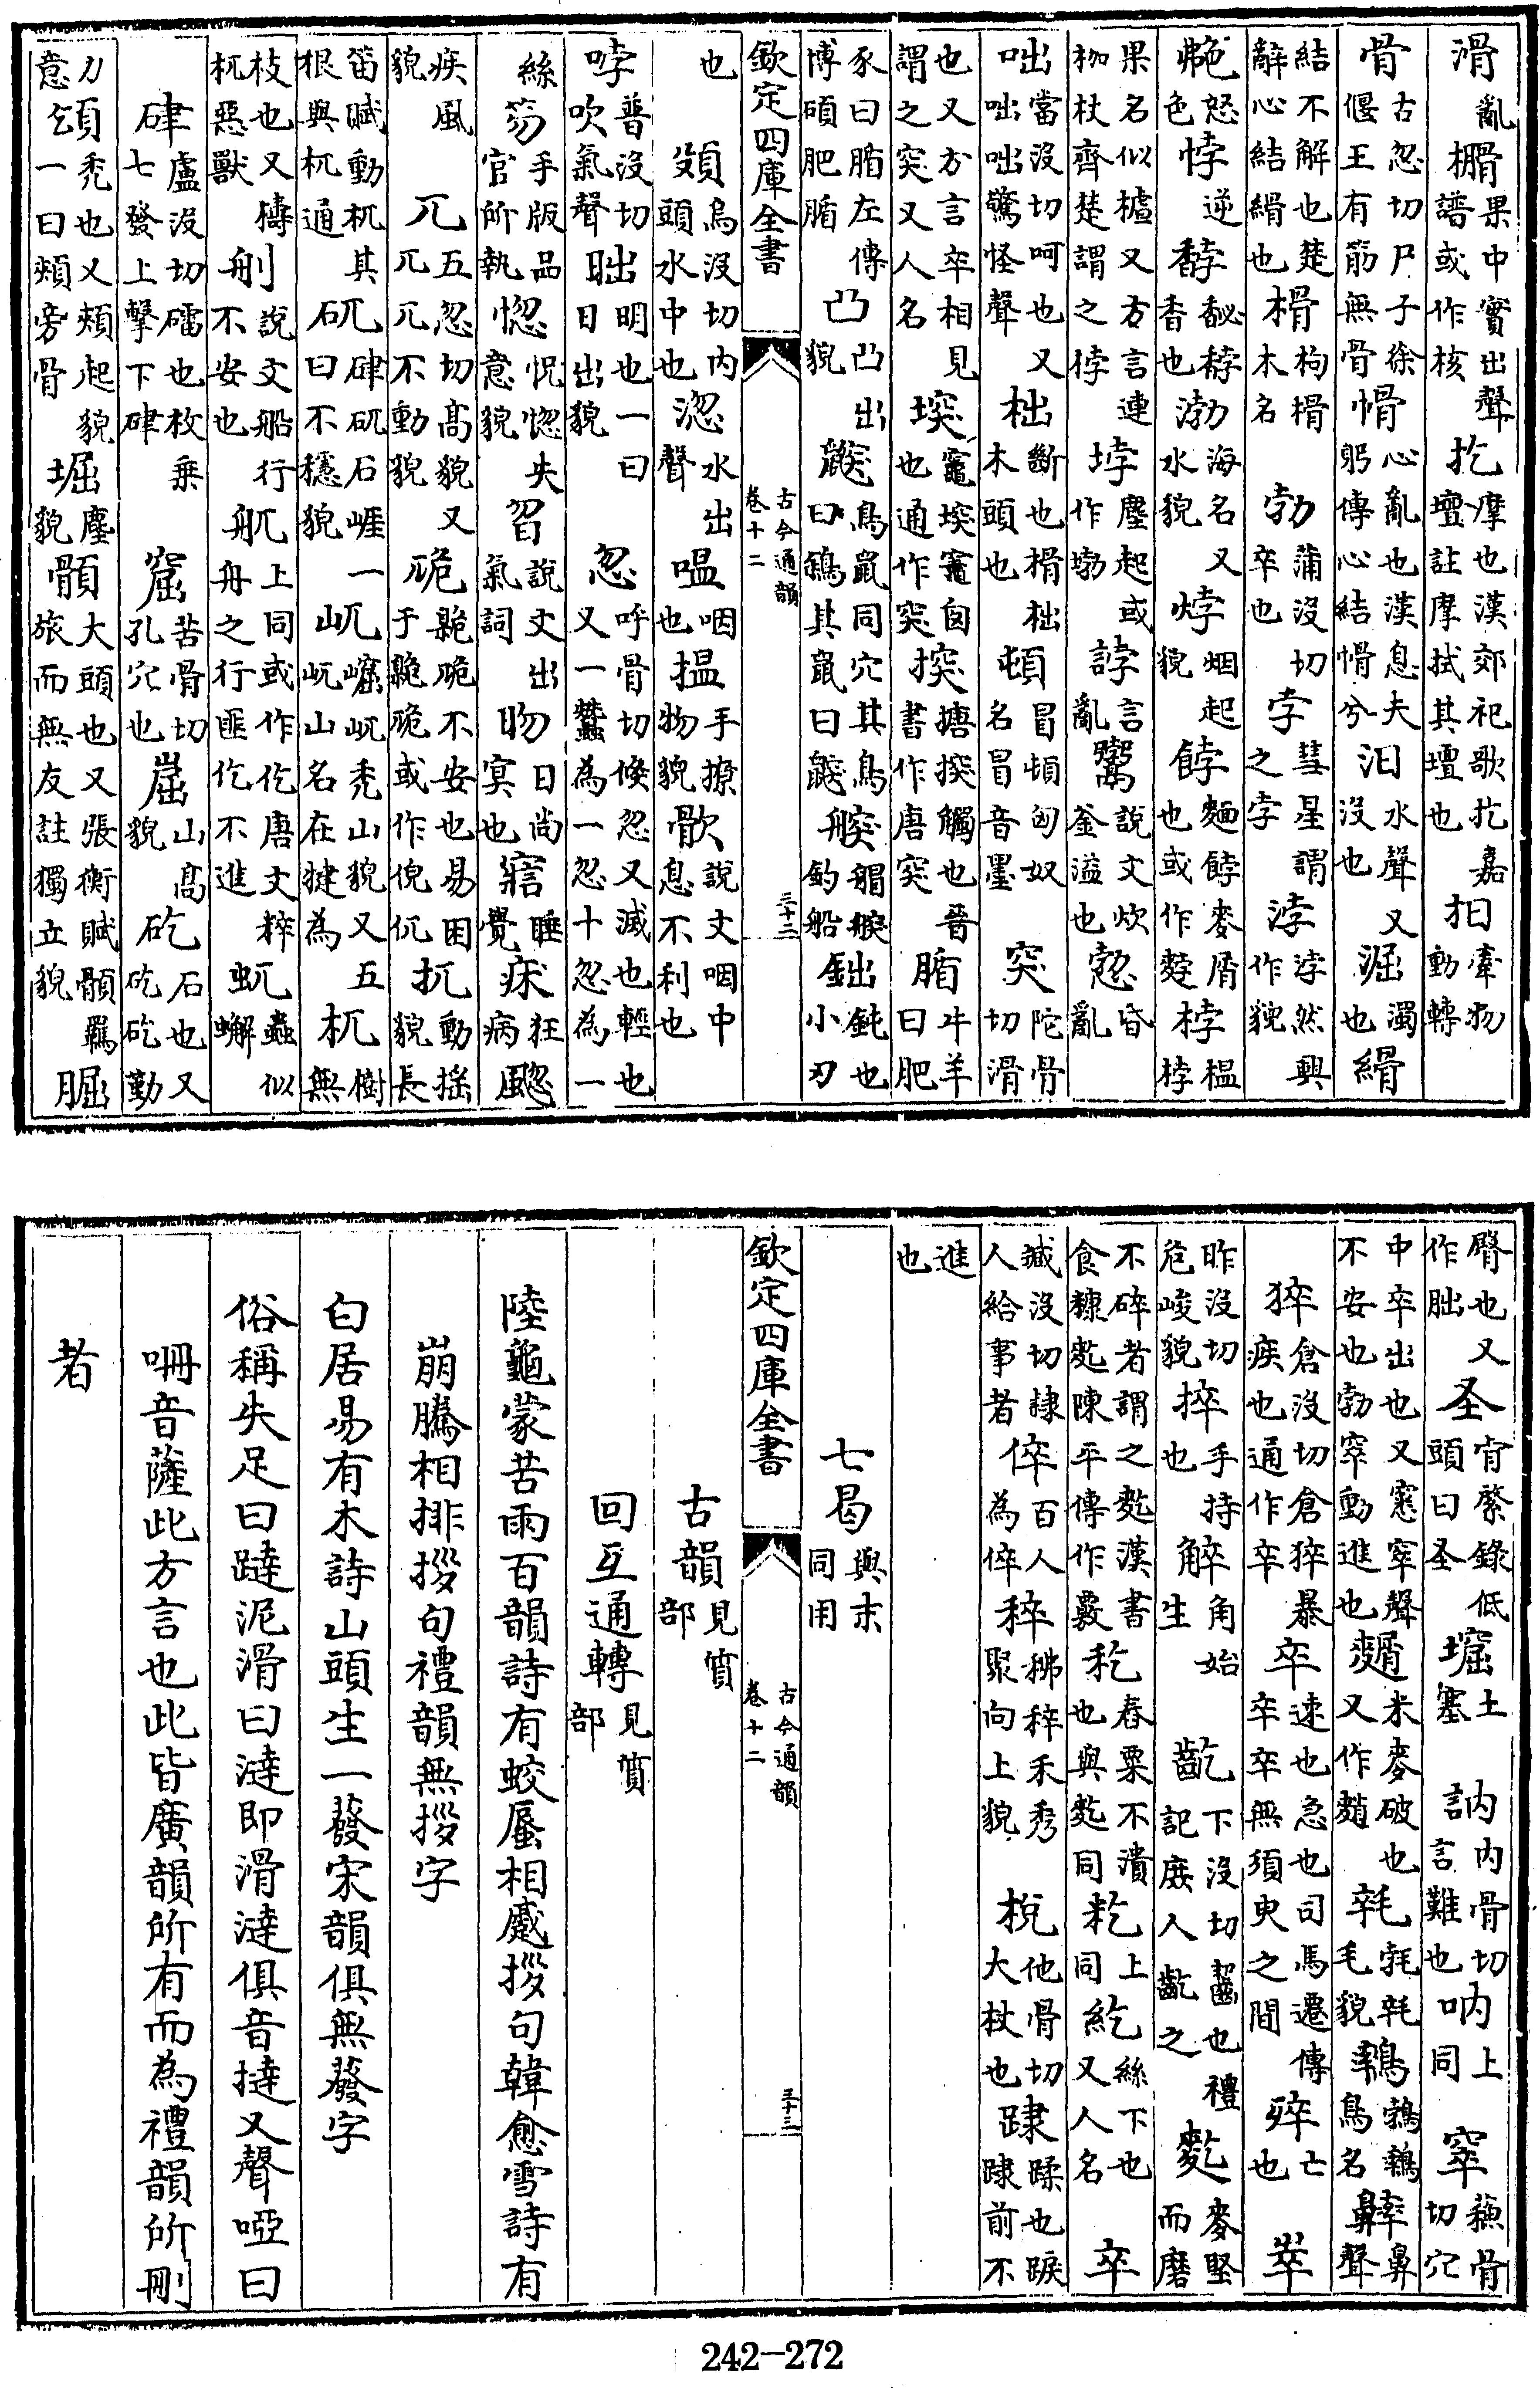 滑亂榾果中實出聲譜或作核扢摩也漢郊祀歌扢嘉壇註摩拭其壇也抇牽物動轉
骨古忽切尸子徐偃王有筋無骨愲心亂也漢息夫躬傳心結愲兮汩水聲又沒也淈濁也縎
結不解也楚辭心結縎也榾枸榾木名勃蒲沒切卒也孛彗星謂之孛浡浡然興作貌
艴怒色悖逆馞馝馞香也渤海名又水貌㶿烟起貌餑麵餑麥屑也或作䴺桲榅
果名似樝又方言連枷杖齊楚謂之桲埻塵起或作㪍誶言亂䰾說文炊釜溢也㥬昏亂
咄當沒切呵也又咄咄驚怪聲柮斷也榾柮木頭也頓冒頓匈奴名冒音墨突陀骨切滑
也又方言卒相見謂之突又人名堗竈堗竈囪也通作突揬搪揬觸也晉書作唐突腯牛羊曰肥
豕曰腯左傳博碩肥腯凸凸出貌鼵鳥鼠同穴其鳥曰鵌其鼠曰鼵䑞艒䑞釣船䤕鈍也小刃
欽定四庫全書
古今通韻
卷十二
三十三
也頞烏沒切內頭水中也淴水出聲嗢咽也搵手撩物貌㰶說文咽中息不利也
哱普沒切吹氣聲昢明也一曰日出貌忽呼骨切倏忽又滅也輕也又一蠶為一忽十忽為一
絲笏手版品官所執惚怳惚失意貌曶說文出氣詞昒日尚冥也寣睡覺㾀狂病颮
疾風貌兀五忽切高貌又兀兀不動貌䏐臲䏐不安也易困于臲䏐或作倪㐳扤動搖貌長
笛賦動杌其根與杌通矹硉矹石崖一曰不穩貌屼𡾊屼禿山貌又五屼山名在犍為杌樹無
枝也又檮杌惡獸刖說文船行不安也舤上同或作仡唐文粹舟之行匪仡不進虭蟲似蠏
硉盧沒切礌也枚乘七發上擊下硉窟苦骨切孔穴也崫山高貌矻石也又矻矻勤
力䫀禿也又頰起貌意乞一曰頰旁骨堀塵貌顝大頭也又張衡賦顝羈旅而無友註獨立貌䐇
臀也又作朏圣甯棨錄低頭曰圣堀土塞訥內骨切言難也吶上同窣蘇骨切穴
中卒出也又窸窣聲不安也勃窣動進也𪍓米麥破也又作䴰㲞㲞毛貌鶟鳥名鼻聲
猝倉沒切倉猝暴疾也通作卒卒速也急也司馬遷傳卒卒無須臾之間殚亡也崒
昨沒切危峻貌捽手持也䚝角始生齕下沒切齧也禮記庶人齕之麧麥堅而磨
不碎者謂之麧漢書食糠麧陳平傳作覈秔舂粟不潰也與麧同籺上同紇絲下也又人名卒
臧沒切隸人給事者倅百人為倅稡秭稡禾秀聚向上貌梲他骨切大杖也踛蹂也踧踛前不
進也
七曷與末同用
欽定四庫全書
古今通韻
卷十二
三十三
古韻見質部
回互通轉見質部
陸龜蒙苦雨百韻詩有蛟蜃相蹙拶句韓愈雪詩有
崩騰相排拶句禮韻無拶字
白居易有木詩山頭生一蕟宋韻俱無蕟字
俗稱失足曰躂泥滑曰澾即滑澾俱音撻又聲啞曰
㗝音薩此方言也此皆廣韻所有而為禮韻所刪
者
242-272